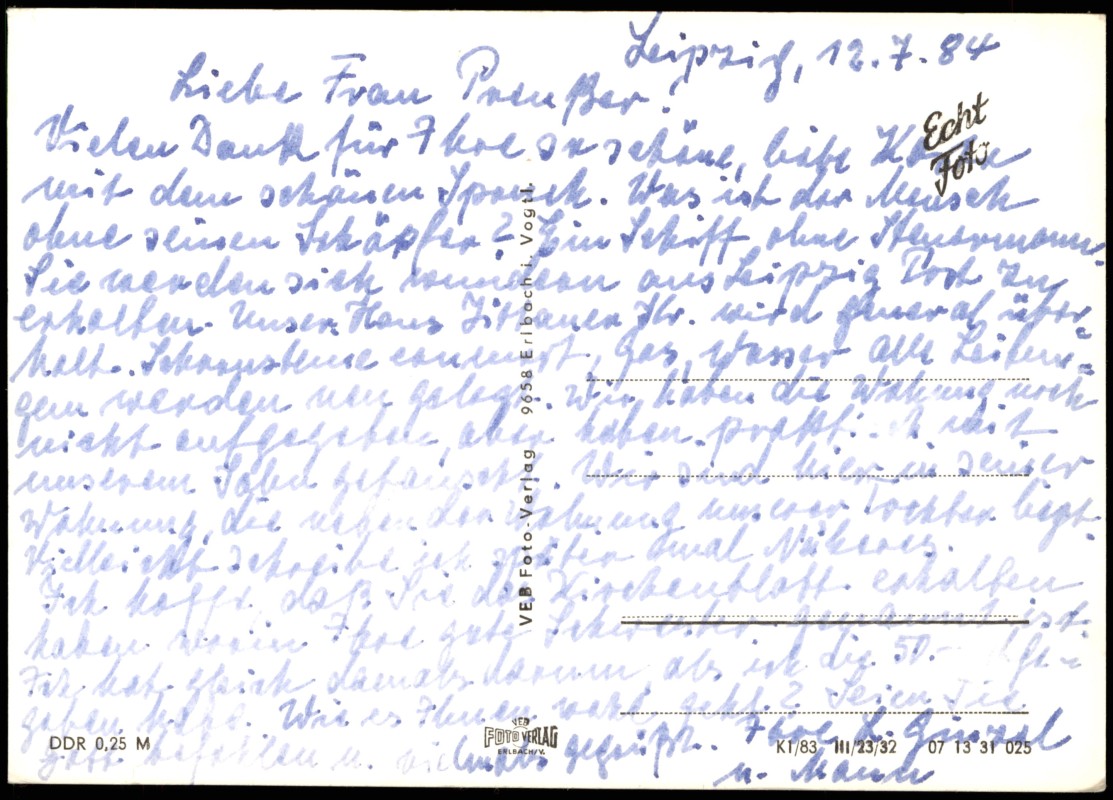 Leipzig, 12.7.84
Liebe Frau Preußer!
Vielen Dank für Ihre so schöne, liebe Karte
mit dem schönen Spruch. Was ist der Mensch
ohne seinen Schöpfer? Ein Schiff ohne Steuermann.
Sie werden sich wundern aus Leipzig Post zu
erhalten. Unser Haus Zittauer Str. wird general über-
holt. Schornsteine erneuert, Gas, Wasser alle Leitun-
gen werden neu gelegt. Wir haben die Wohnung noch
nicht aufgegeben, aber haben prakt. mit
unserem Sohn getauscht. Wir sind hier in seiner
Wohnung, die neben der Wohnung unserer Tochter liegt.
Vielleicht schreibe ich später einmal Näheres.
Ich hoffe, daß Sie das Kirchenblatt erhalten
haben worin Ihre gute Schwester genannt ist.
Ich bat gleich damals darum, als ich die 50.-
geben habe. Wie es Ihnen wohl geht? Seien Sie
Gott befohlen u. vielmals gegrüßt. Ihre
u. Mann
Echt
Foto
VEB Foto-Verlag 9658 Erlbach i. Vogtl.
DDR 0,25 M
VEB
FOTO VERLAG
ERLBACH/V.
K1/83 III/23/32 07 13 31 025